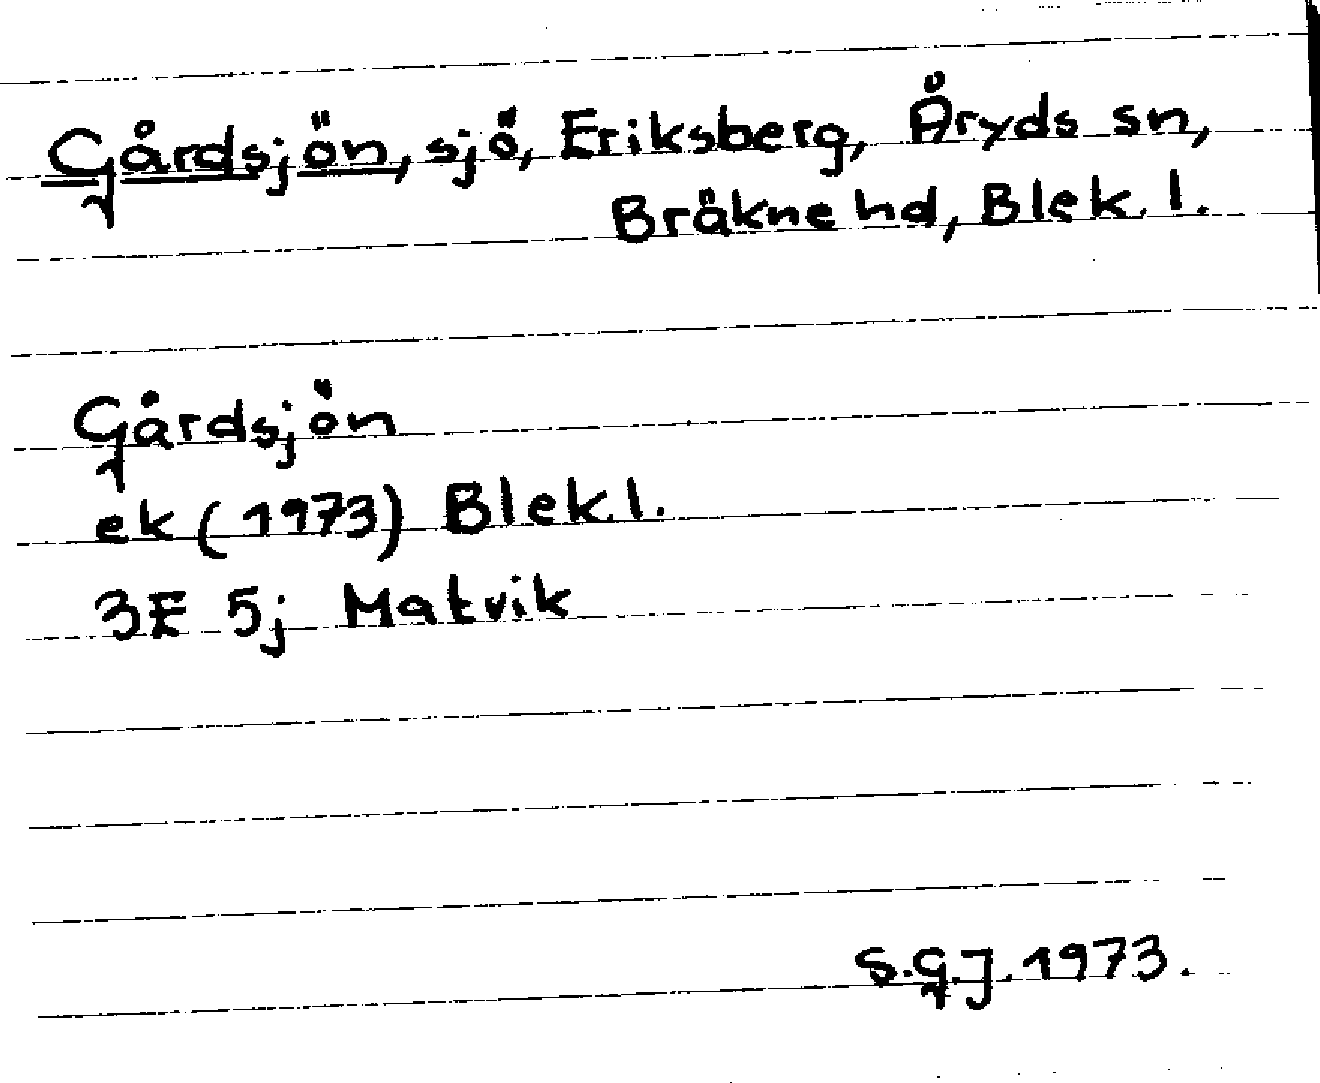 Gårdsjön, sjö, Eriksberg, Åryds sn,
Bräkne hd, Blek. l.
Gårdsjön
ek (1973) Blek. l.
3E 5j Matvik
S.G.J. 1973.